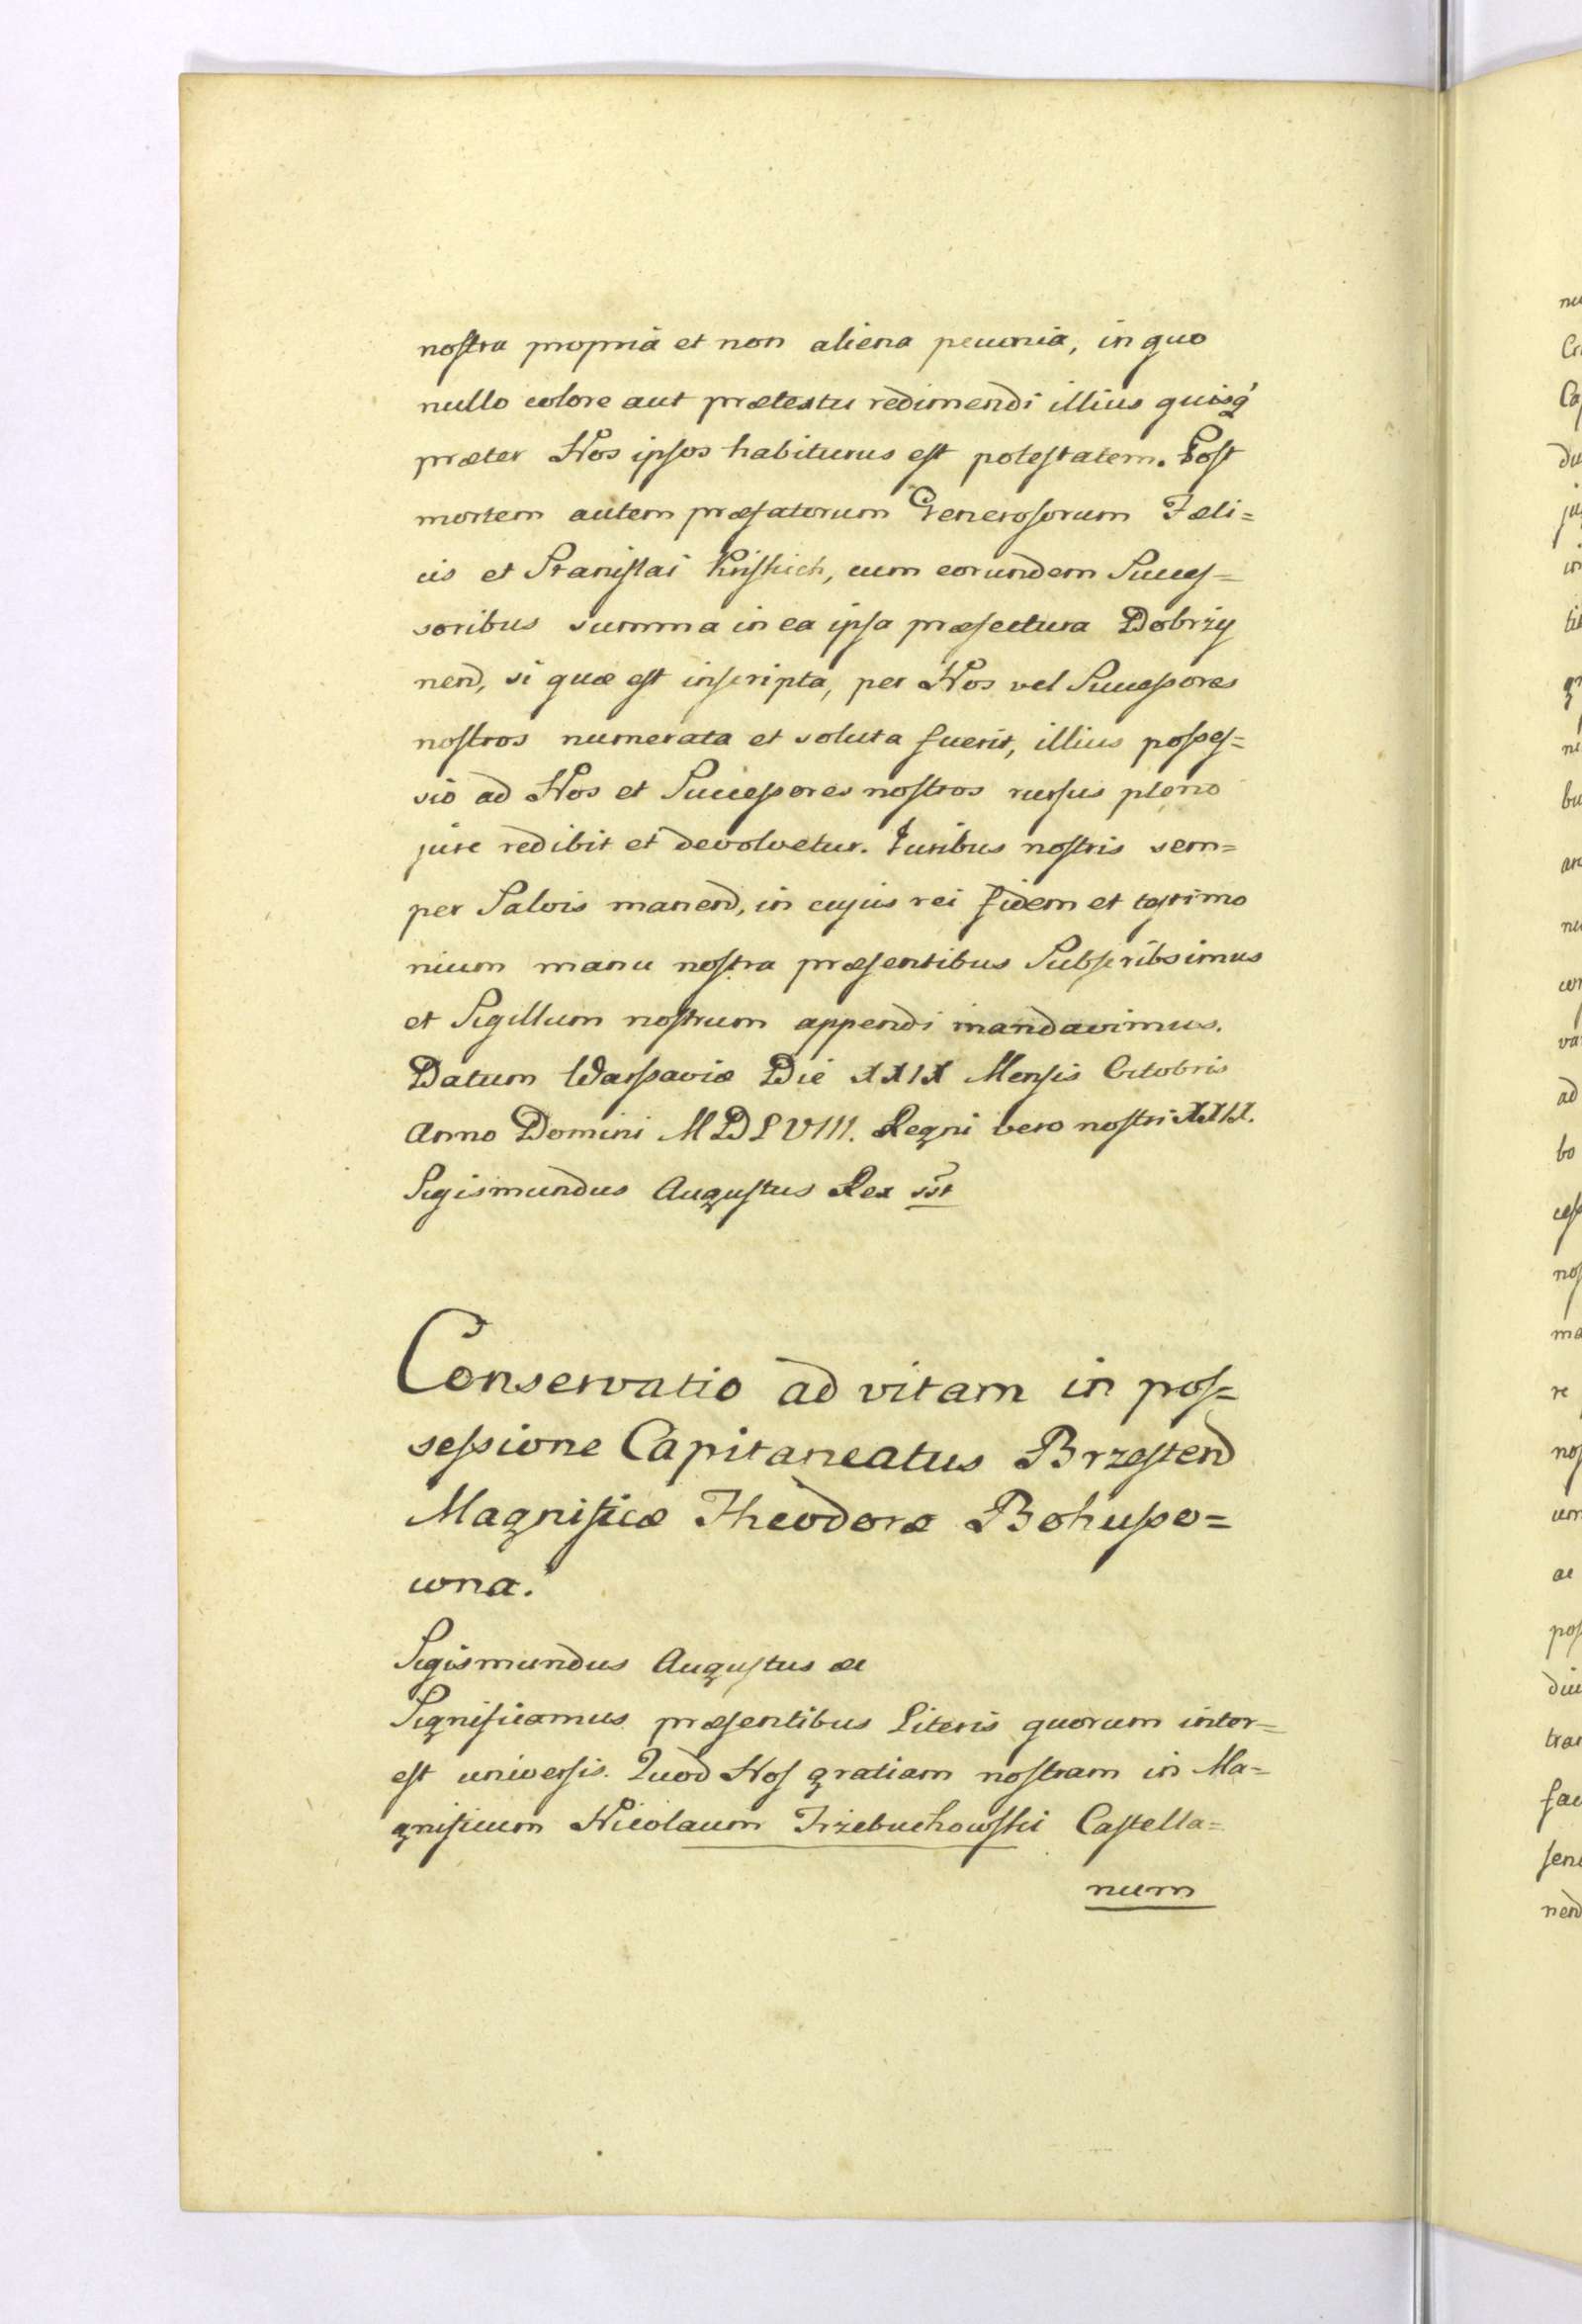 nostra propriâ et non aliena pecuniâ, in quo
nullo colore aut prætextu redimendi illius quisq́
præter Nos ipsos habiturus est potestatem. Post
mortem autem præfatorum Generosorum Fæli=
cis et Stanislai Kriskich, cum eorundem Succes=
soribus summa in ea ipsa præfectura Dobrzy
nend, si quæ est inscripta, per Nos vel Successores
nostros numerata et soluta fuerit, illius posses=
sio ad Nos et Successores nostros rursus pleno
jure redibit et devolvetur. Juribus nostris sem=
per Salvis manend, in cujus rei fidem et testimo
nium manu nostra præsentibus Subscribsimus
et Sigillum nostrum appendi mandavimus.
Datum Warsaviæ Die XXIX Mensis Octobris
Anno Domini MDLVIII. Regni vero nostri XXIX.
Sigismundus Augustus Rex sst
Conservatio ad vitam in pos=
sessione Capitaneatus Brzestend
Magnificæ Theodoræ Bohusso=
wna.
Sigismundus Augustus &c
Significamus præsentibus Literis quorum inter=
est universis. Quod Nos gratiam nostram in Ma=
gnificum Nicolaum Trzebuchowski Castella=
num